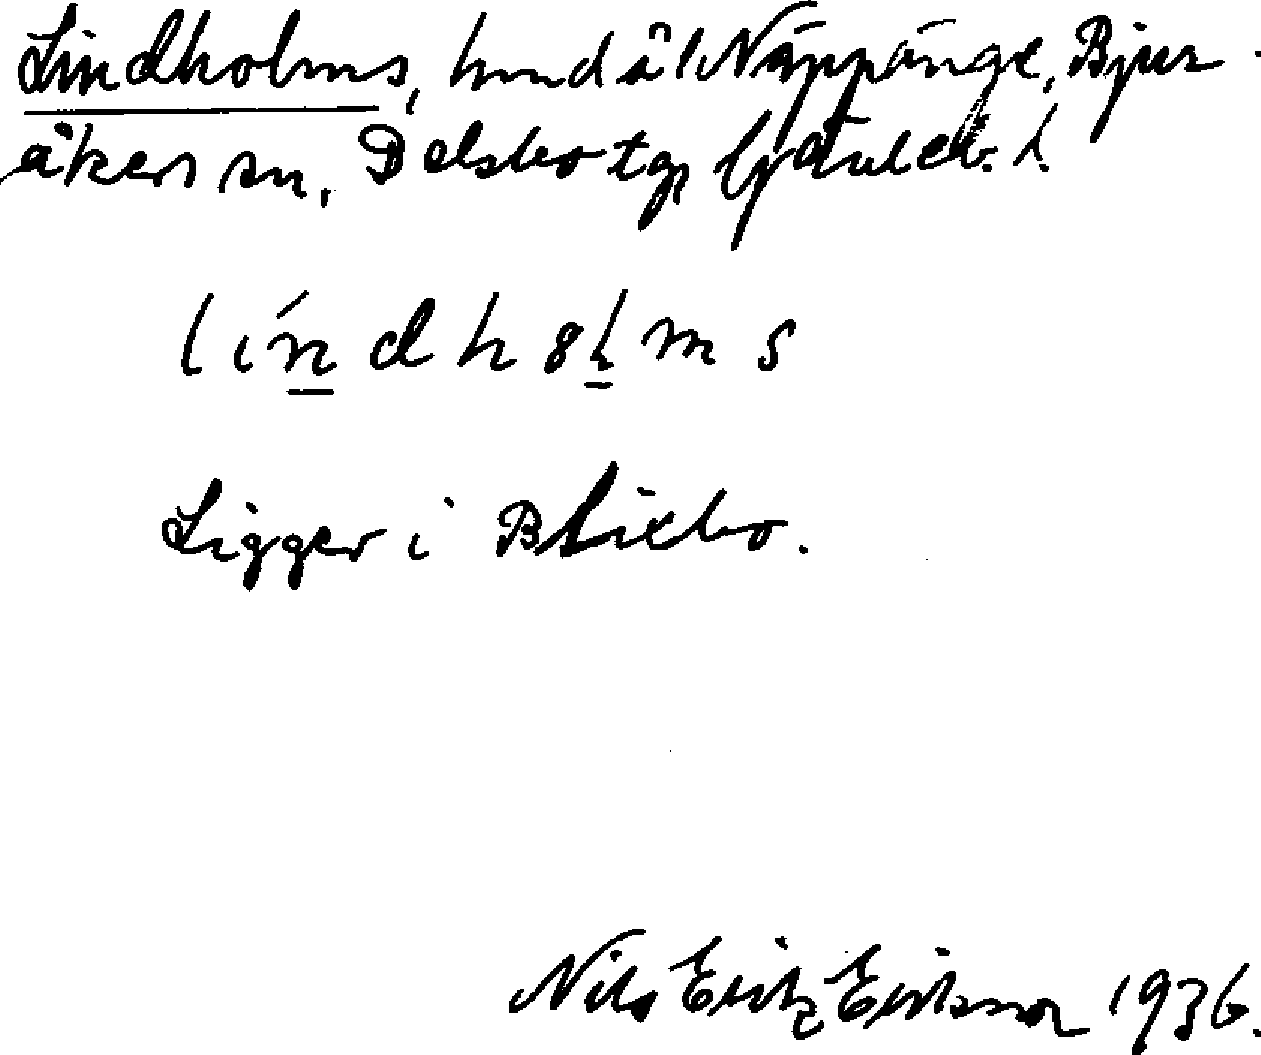 Lindholms, hmd å l Näppänge, Bjur-
åkers sn, Delsbo tg, Gävleb. l.
líndh8lms
Ligger i Blixbo.
Nils Erik Eriksson 1936.